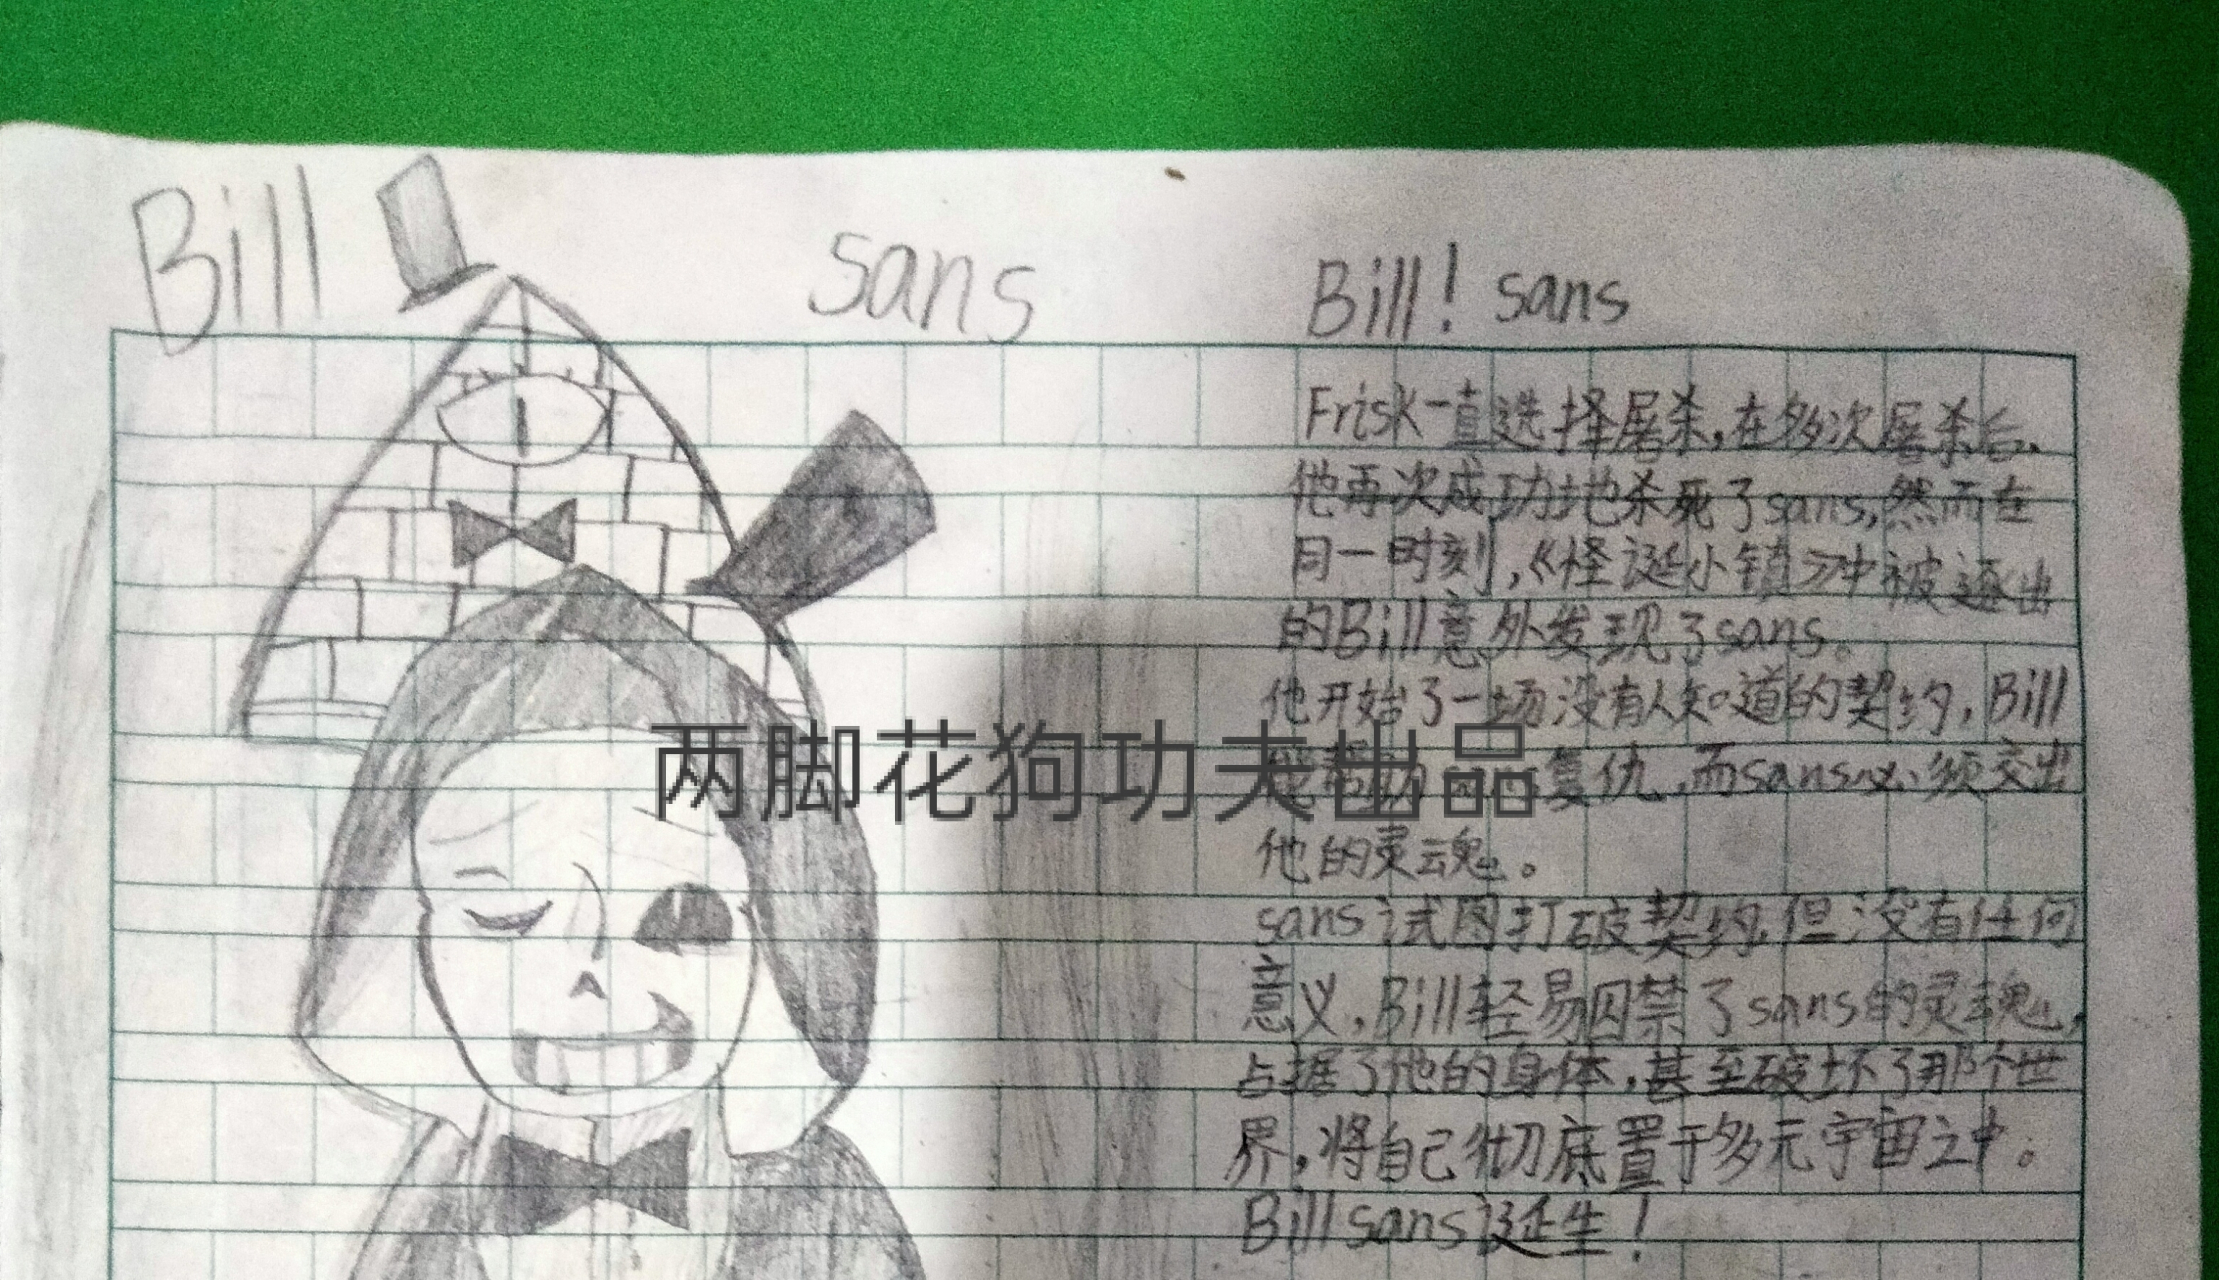 Bill
sans
Bill! sans
Frisk一直选择屠杀,在多次屠杀后、
他再次成功地杀死了sans,然而在
同一时刻,《怪诞小镇》中被逐出
的Bill意外发现了sans。
他开始了一场没有人知道的契约,Bill
帮助sans复仇,而sans必须交出
他的灵魂。
sans试图打破契约,但没有任何
意义,Bill轻易囚禁了sans的灵魂,
占据了他的身体,甚至破坏了那个世
界,将自己彻底置于多元宇宙之中。
Bill sans诞生!
两脚花狗功夫出品